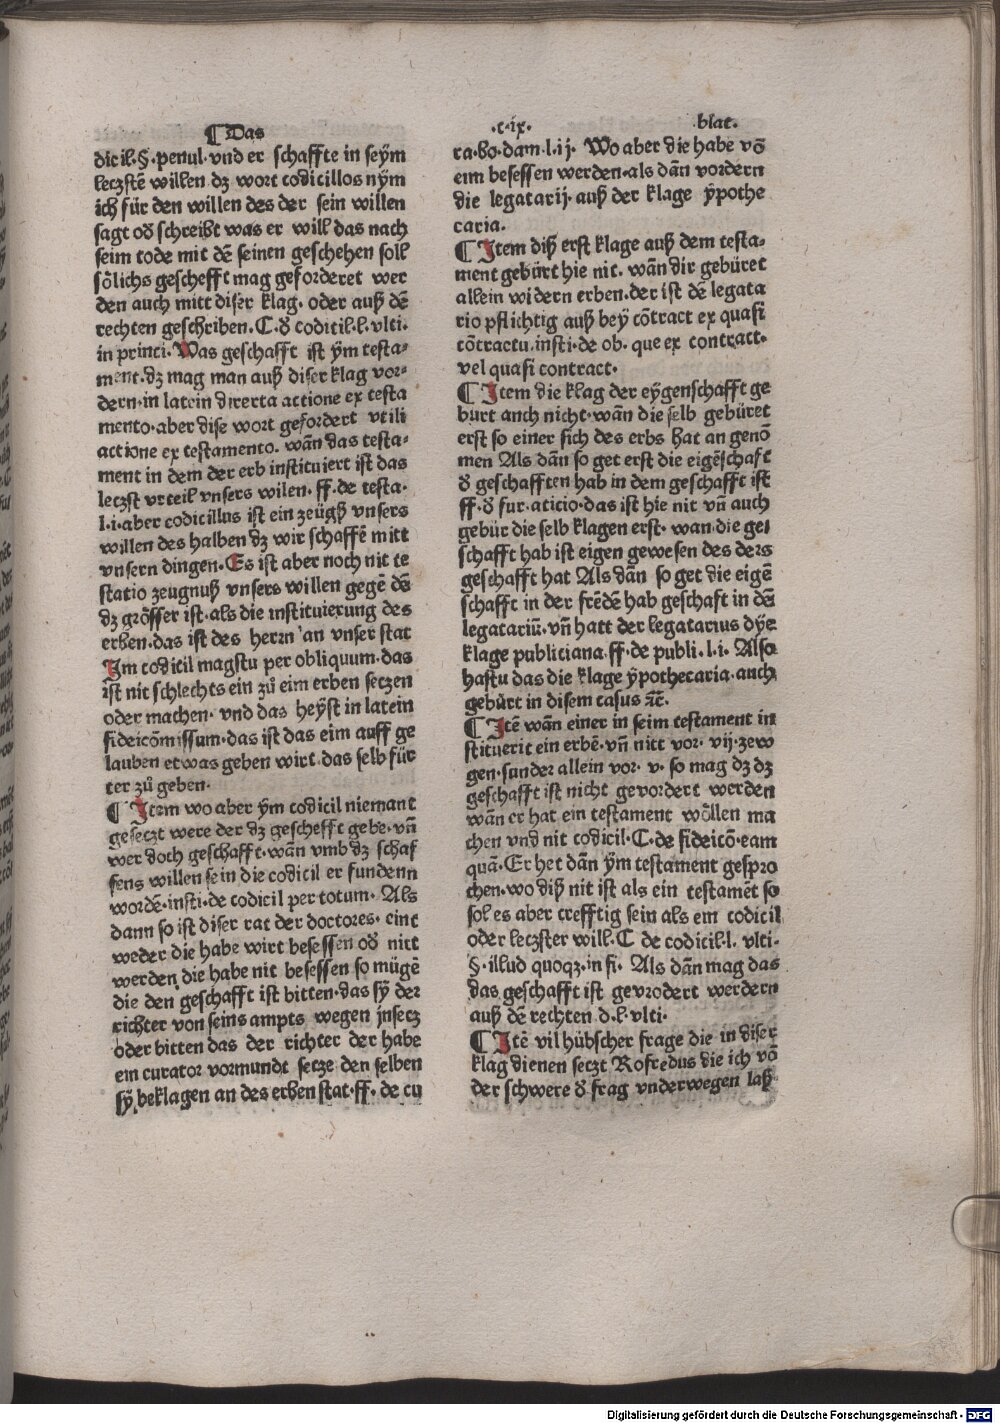 ¶ Das .c.ix. blat.
dicil.§.penul.vnd er schaffte in seým
leczstē willen dz wort codicillos ným
ich für den willen des der sein willen
sagt oď schreibt was er will das nach
seim tode mit dē seinen geschehen soll
sölichs gescheff​t mag geforderet wer
den auch mitt diser klag. oder auß dē
rechten geschriben.C.ď codicil.l.vlti.
in princi.Was geschafft ist ým testa-
ment.dz mag man auß diser klag vor-
dern.in latein directa actione ex testa
mento.aber dise wort gefordert vtili
actione ex testamento. wān das testa-
ment in dem der erb instituiert ist das
leczst vrteil vnsers wilen.ff.de testa.
l.i.aber codicillus ist ein zeügß vnsers
willen des halben dz wir schaffē mitt
vnsern dingen.Es ist aber noch nit te
statio zeugnuß vnsers willen gegē dē
dz grösser ist.als die instituierung des
erben.das ist des herrn an vnser stat
Im codicil magstu per obliquum.das
ist nit schlechts ein zů eim erben seczen
oder machen. vnd das heýst in latein
fideicōmissum.das ist das eim auff ge
lauben etwas geben wirt.das selb für
ter zů geben.
¶ Item wo aber ým codicil niemant
geseczt were der dz gescheff​t gebe.vn̄
wer doch geschafft.wān vmb dz schaf
fens willen sein die codicil er fundenn
wordē.insti.de codicil per totum. Als
dann so ist diser rat der doctores. eint
weder die habe wirt besessen oď nitt
werden die habe nit besessen so mügē
die den geschafft ist bitten.das sý der
richter von seins ampts wegen jnsecz
oder bitten das der richter der habe
ein curator vormundt secze den selben
sý beklagen an des erben stat.ff.de cu
ra.bo.dam.l.ij. Wo aber die habe vō
eim besessen werden.als dān vordern
die legatarij.auß der klage ýpothe
caria.
¶ Item diß erst klage auß dem testa-
ment gebürt hie nit. wān dir gebüret
allein widern erben.der ist dē legata
rio pflichtig auß beý cōtract ex quasi
cōtractu.insti.de ob.que ex contract.
vel quasi contract.
¶ Item die klag der eýgenschafft ge
burt auch nicht.wān die selb gebüret
erst so einer sich des erbs hat an genō
men Als dān so get erst die eigēschaft
ď geschafften hab in dem geschafft ist
ff.ď fur.aticio.das ist hie nit vn̄ auch
gebür die selb klagen erst. wan die ge
schafft hab ist eigen gewesen des ders
geschafft hat Als dān so get die eigē
schafft in der frēdē hab geschaft in dē
legatariū.vn̄ hatt der legatarius dýe
klage publiciana.ff.de publi.l.i. Also
hastu das die klage ýpothecaria.auch
gebürt in disem casus ⁊c̄.
¶ Itē wān einer in seim testament in
stituerit ein erbē.vn̄ nitt vor. vij.zew
gen.sunder allein vor. v. so mag dz dz
geschafft ist nicht gevordert werden
wān er hat ein testament wöllen ma
chen vnd nit codicil.C.de fideicō.eam
quā.Er het dān ým testament gespro
chen.wo diß nit ist als ein testamēt so
sol es aber crefftig sein als em codicil
oder leczster will.C de codicil.l. vlti.
§.illud quoqz.in fi. Als dān mag das
das geschafft ist gevrodert werdern
auß dē rechten.d.l.vlti.
¶ Itē vil hübscher frage die in diser
klag dienen seczt Rofredus die ich vō
der schwere ď frag vnderwegen laß
Digitalisierung gefördert durch die Deutsche Forschungsgemeinschaft - DFG